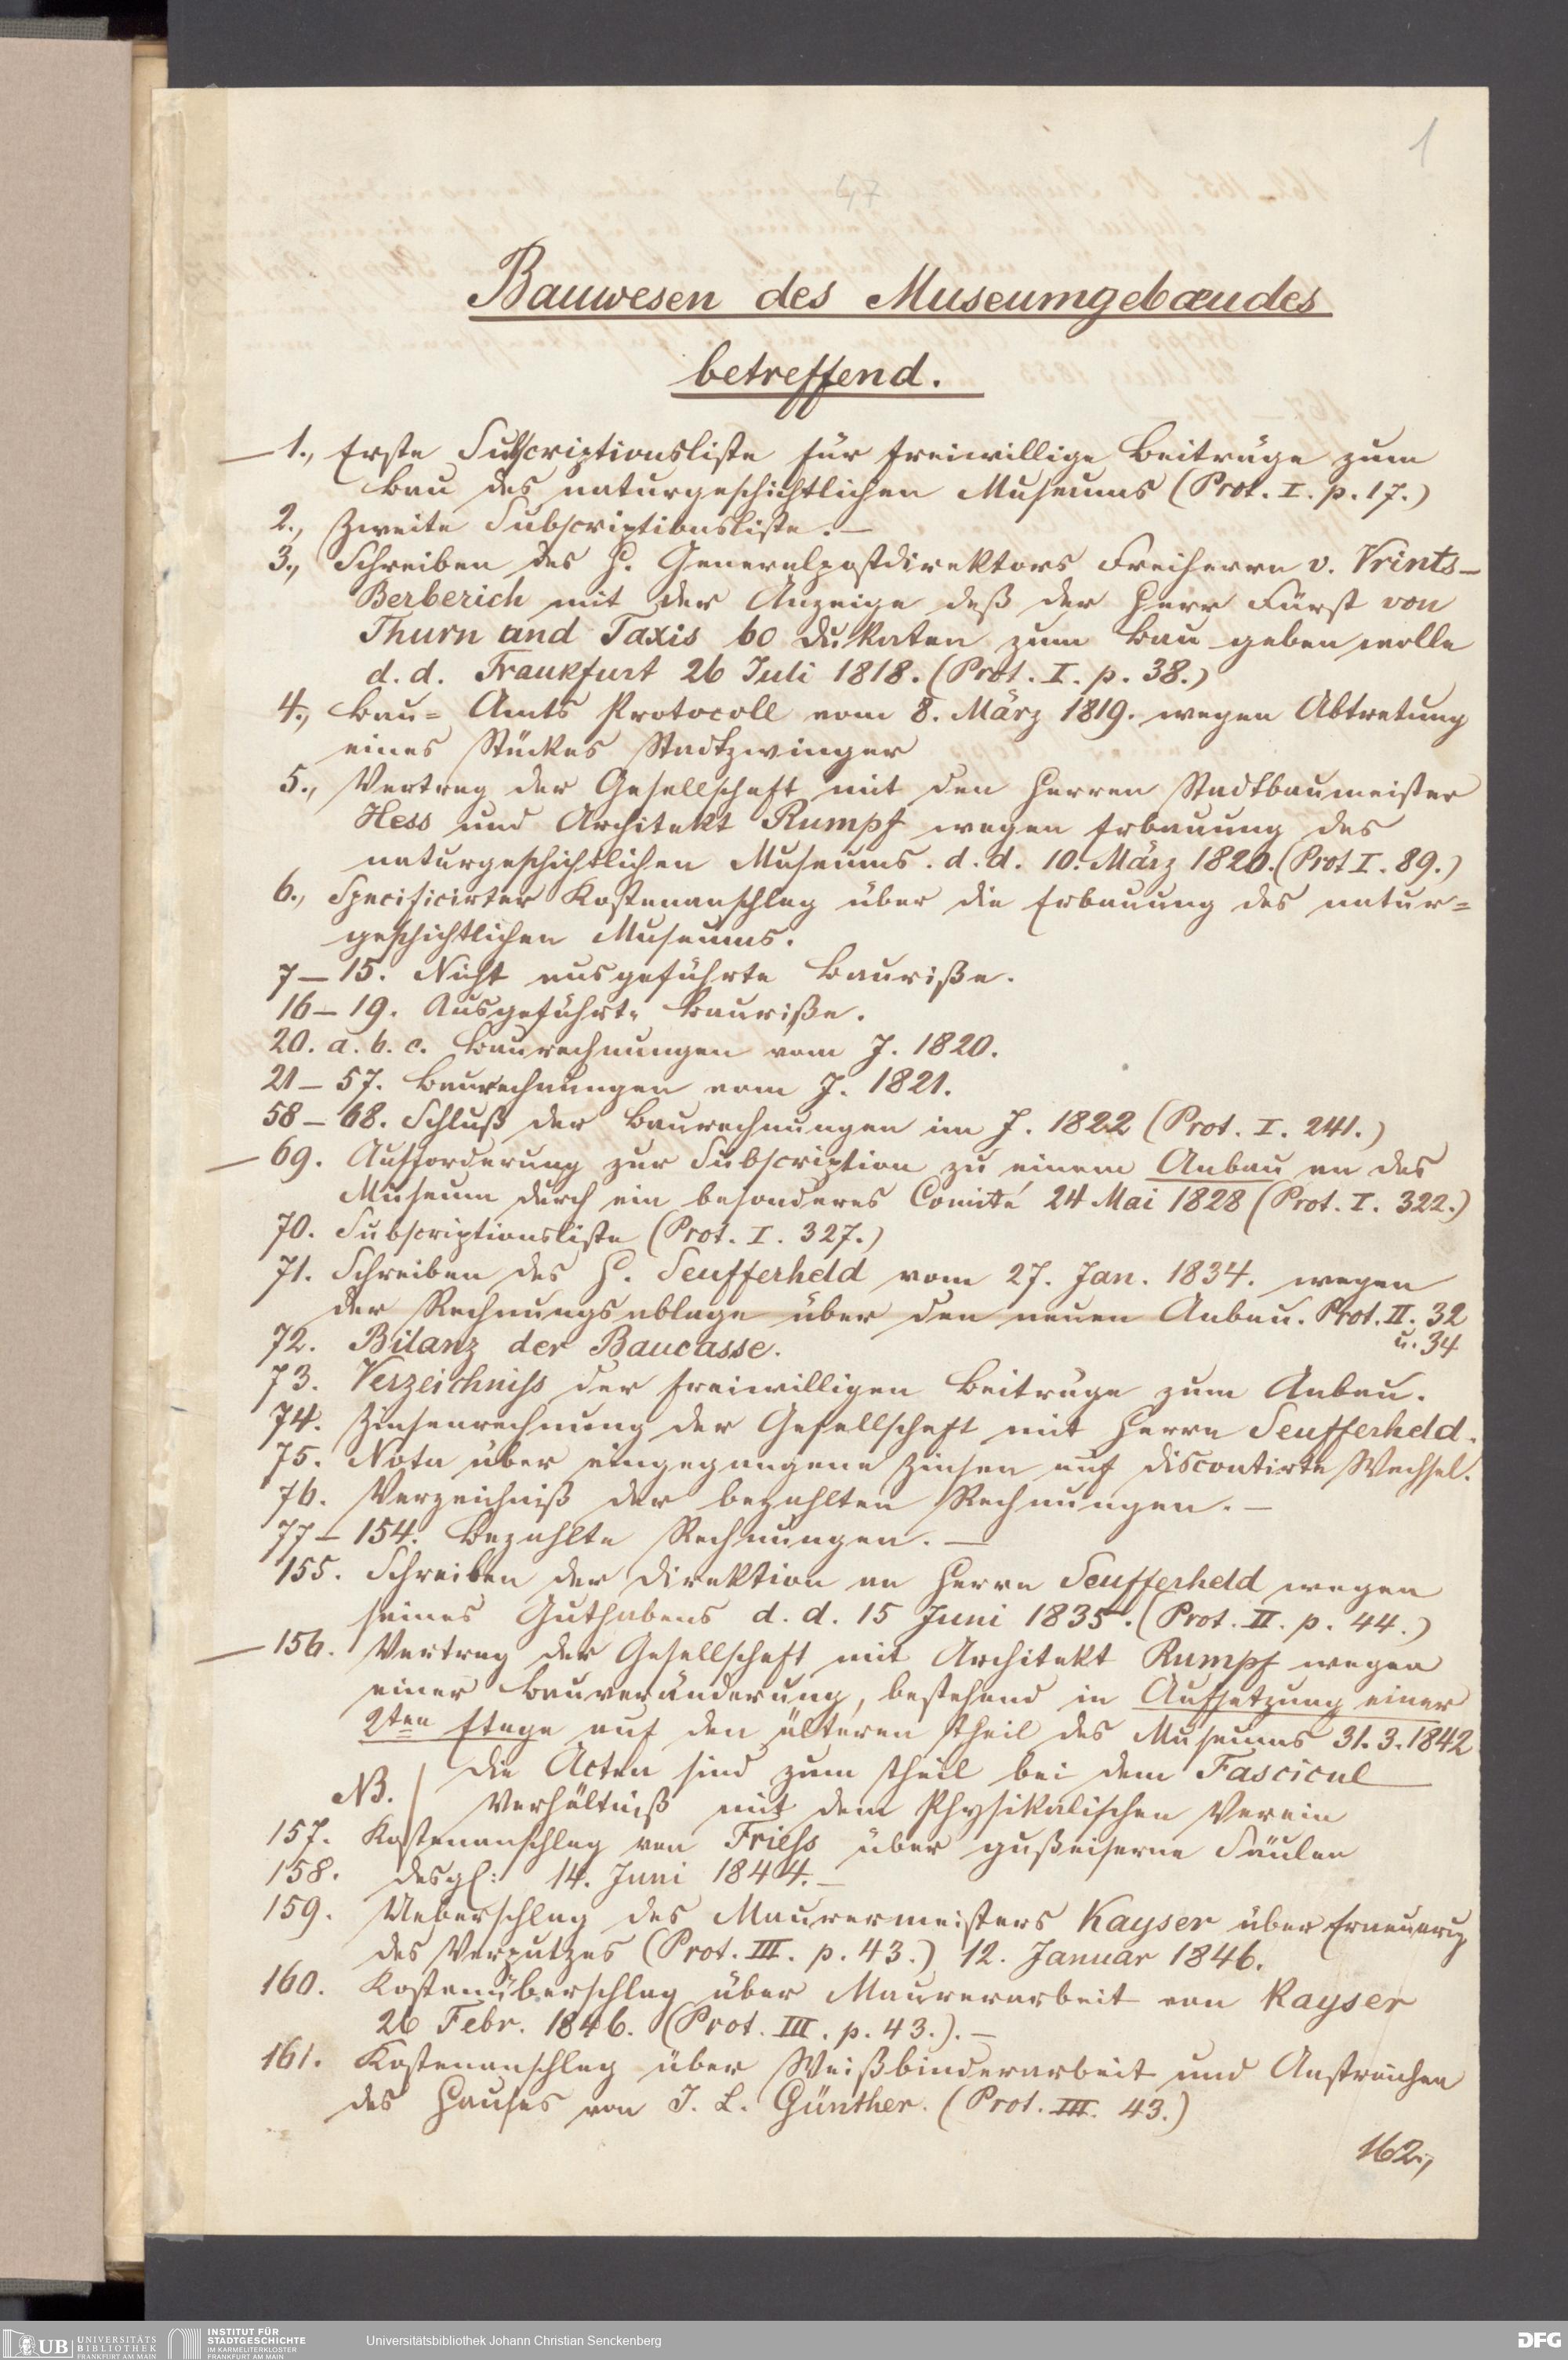 1
47
Bauwesen des Museumgebaeudes
betreffend.
1., Erste Subscriptionsliste für freiwillige Beiträge zum
Bau des naturgeschichtlichen Museums (Prot. I. p. 17.)
2., Zweite Subscriptionsliste. —
3., Schreiben des H. Generalpostdirektors Freiherrn v. Vrints-
Berberich mit der Anzeige daß der Herr Fürst von
Thurn und Taxis 60 Dukaten zum Bau geben wolle
d. d. Frankfurt 26 Juli 1818. (Prot. I. p. 38.)
4., Bau= Amts Protocoll vom 8. März 1819. wegen Abtretung
eines Stückes Stadtzwinger
5., Vertrag der Gesellschaft mit den Herren Stadtbaumeister
Hess und Architekt Rumpf wegen Erbauung des
naturgeschichtlichen Museums. d. d. 10. März 1820. (Prot I. 89.)
6., Specificirter Kostenanschlag über die Erbauung des natur=
geschichtlichen Museums.
7–15. Nicht ausgeführte Bauriße.
16–19. Ausgeführte Bauriße.
20. a. b. c. Baurechnungen vom J. 1820.
21–57. Baurechnungen vom J. 1821.
58–68. Schluß der Baurechnungen im J. 1822 (Prot. I. 241.)
— 69. Aufforderung zur Subscription zu einem Anbau an das
Museum durch ein besonderes Comité 24 Mai 1828 (Prot. I. 322.)
70. Subscriptionsliste (Prot. I. 327.)
71. Schreiben des H. Seufferheld vom 27. Jan. 1834. wegen
der Rechnungsablage über den neuen Anbau. Prot. II. 32
u. 34
72. Bilanz der Baucasse.
73. Verzeichniss der freiwilligen Beiträge zum Anbau.
74. Zinsenrechnung der Gesellschaft mit Herrn Seufferheld.
75. Nota über eingegangene Zinsen auf discontirte Wechsel.
76. Verzeichniß der bezahlten Rechnungen. —
77–154. Bezahlte Rechnungen. —
155. Schreiben der Direktion an Herrn Seufferheld wegen
seines Guthabens d. d. 15 Juni 1835. (Prot. II. p. 44.)
— 156. Vertrag der Gesellschaft mit Architekt Rumpf wegen
einer Bauveränderung, bestehend in Aufsetzung einer
2ten Etage auf den älteren Theil des Museums 31. 3. 1842
NB. Die Acten sind zum Theil bei dem Fascicul
Verhältniß mit dem Physikalischen Verein
157. Kostenanschlag von Friess über gußeiserne Säulen
158. desgl: 14. Juni 1844. —
159. Ueberschlag des Maurermeisters Kayser über Erneuerung
des Verputzes (Prot. III. p. 43.) 12. Januar 1846.
160. Kostenüberschlag über Maurerarbeit von Kayser
26 Febr. 1846. (Prot. III. p. 43.). —
161. Kostenanschlag über Weißbinderarbeit und Anstreichen
des Hauses von J. L. Günther. (Prot. III. 43.)
162.,
UB UNIVERSITÄTS
BIBLIOTHEK
FRANKFURT AM MAIN
INSTITUT FÜR
STADTGESCHICHTE
IM KARMELITERKLOSTER
FRANKFURT AM MAIN
Universitätsbibliothek Johann Christian Senckenberg
DFG